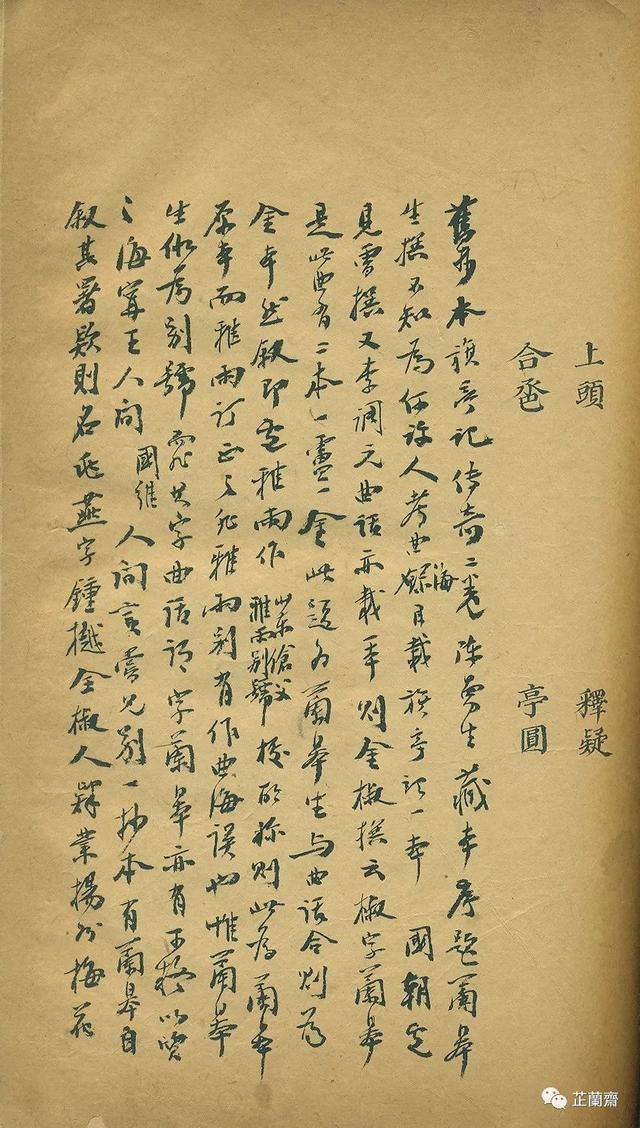 上頭 釋疑
合巹 亭圓
舊抄本旗亭記傳奇二卷 生藏本序題蘭皋
生撰不知為何許人考曲海目載旗亭記一本 國朝盧
見曾撰又李調元曲話亦載一本則金椒撰云椒字蘭皋
是此曲有二本一盧一金此題名蘭皋生与曲話合則為
金本然叙即盧雅雨作山東傖父雅雨別號校所称則此為蘭皋
原本而雅雨訂正之非雅雨別有作曲海误也惟蘭皋
生似為别號非其字曲話謂字蘭皋亦有可疑以質
之海寧王人間國維人間言嘗見别一抄本有蘭皋自
叙其署款則名兆燕字鍾樾全椒人肄業揚州梅花
芷蘭齋